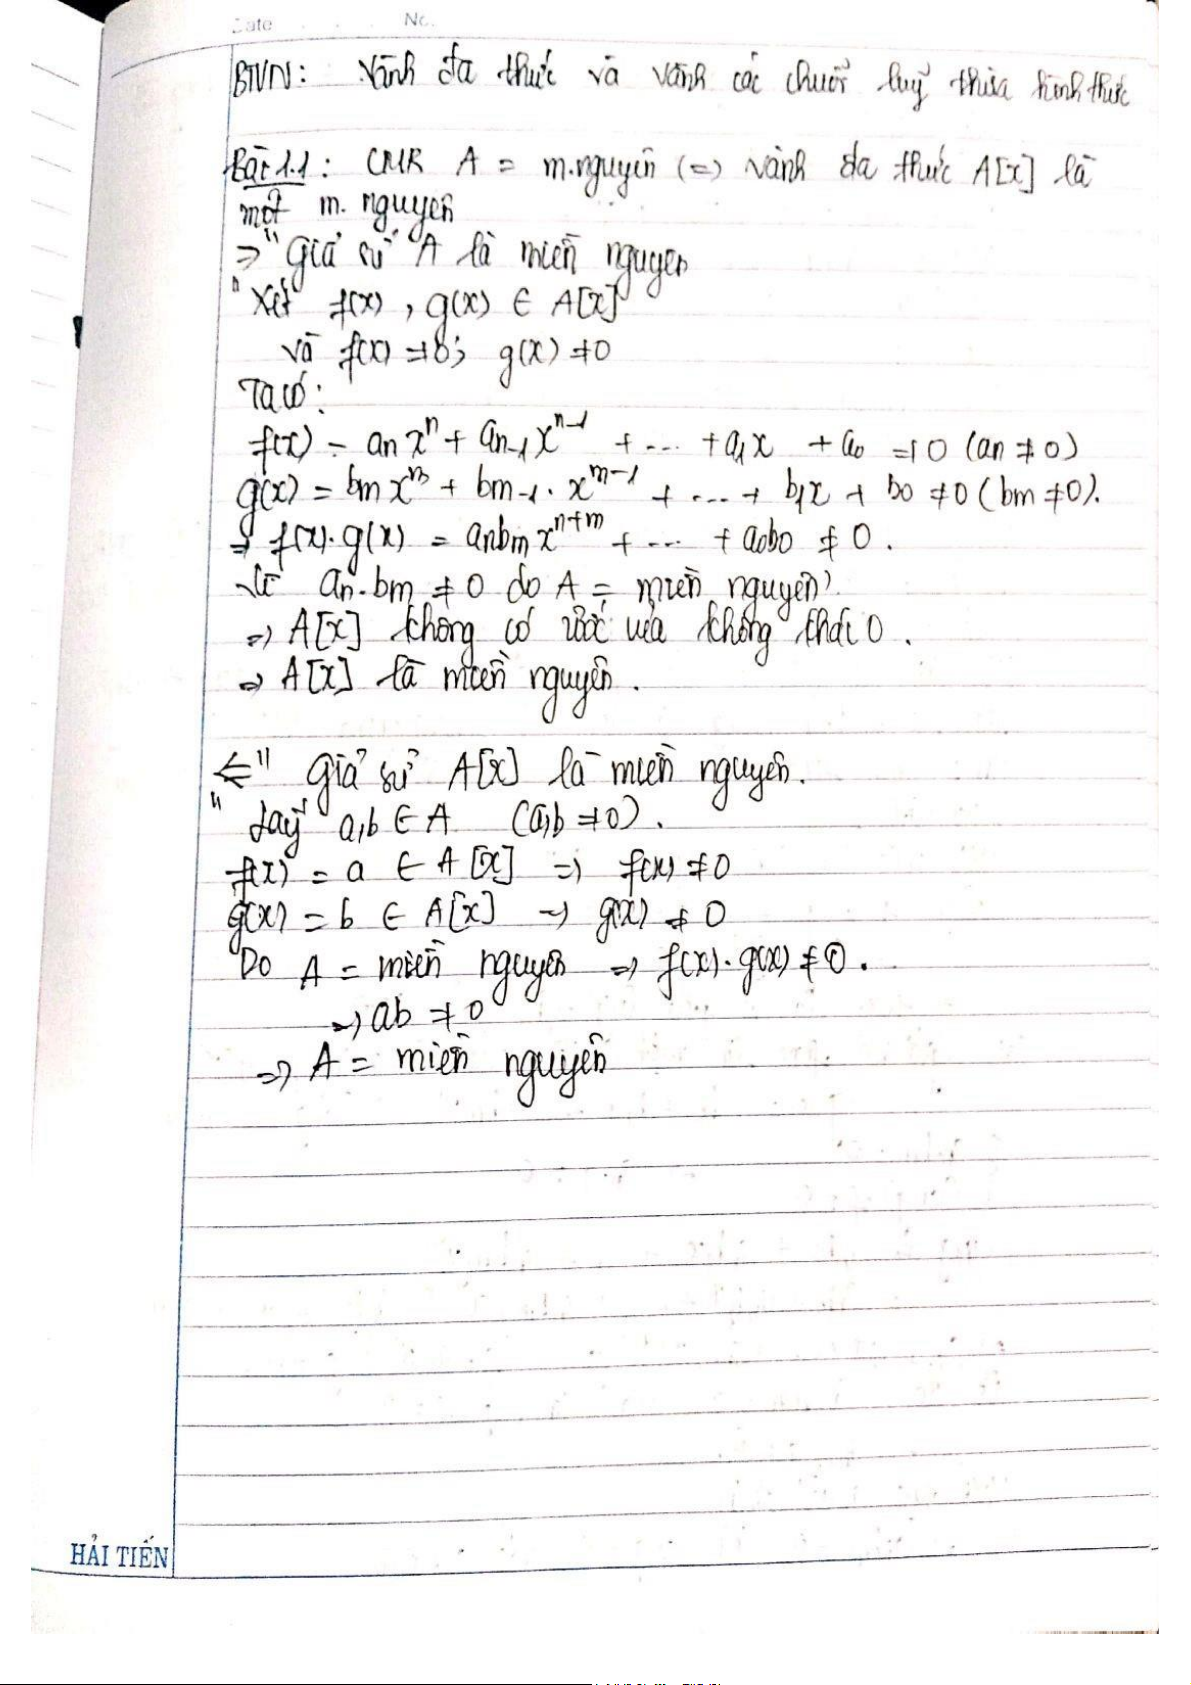 Date No.
BTVN: Vành đa thức và vành các chuỗi luỹ thừa hình thức
Bài 1.1: CMR A = m.nguyên (=) vành đa thức A[x] là
một m. nguyên
"⇒" Giả sử A là miền nguyên
Xét f(x), g(x) ∈ A[x]
và f(x) ≠ 0; g(x) ≠ 0
Ta có:
f(x) = anxⁿ + an-1xⁿ⁻¹ + ... + a1x + a0 ≠ 0 (an ≠ 0)
g(x) = bmxᵐ + bm-1.xᵐ⁻¹ + ... + b1x + b0 ≠ 0 (bm ≠ 0).
⇒ f(x).g(x) = anbmxⁿ⁺ᵐ + ... + a0b0 ≠ 0.
Vì an.bm ≠ 0 do A = miền nguyên
⇒ A[x] không có ước của không khác 0.
⇒ A[x] là miền nguyên.
"⇐" Giả sử A[x] là miền nguyên.
Lấy a,b ∈ A (a,b ≠ 0).
f(x) = a ∈ A[x] ⇒ f(x) ≠ 0
g(x) = b ∈ A[x] ⇒ g(x) ≠ 0
Do A = miền nguyên ⇒ f(x).g(x) ≠ 0.
⇒ ab ≠ 0
⇒ A = miền nguyên
HẢI TIẾN